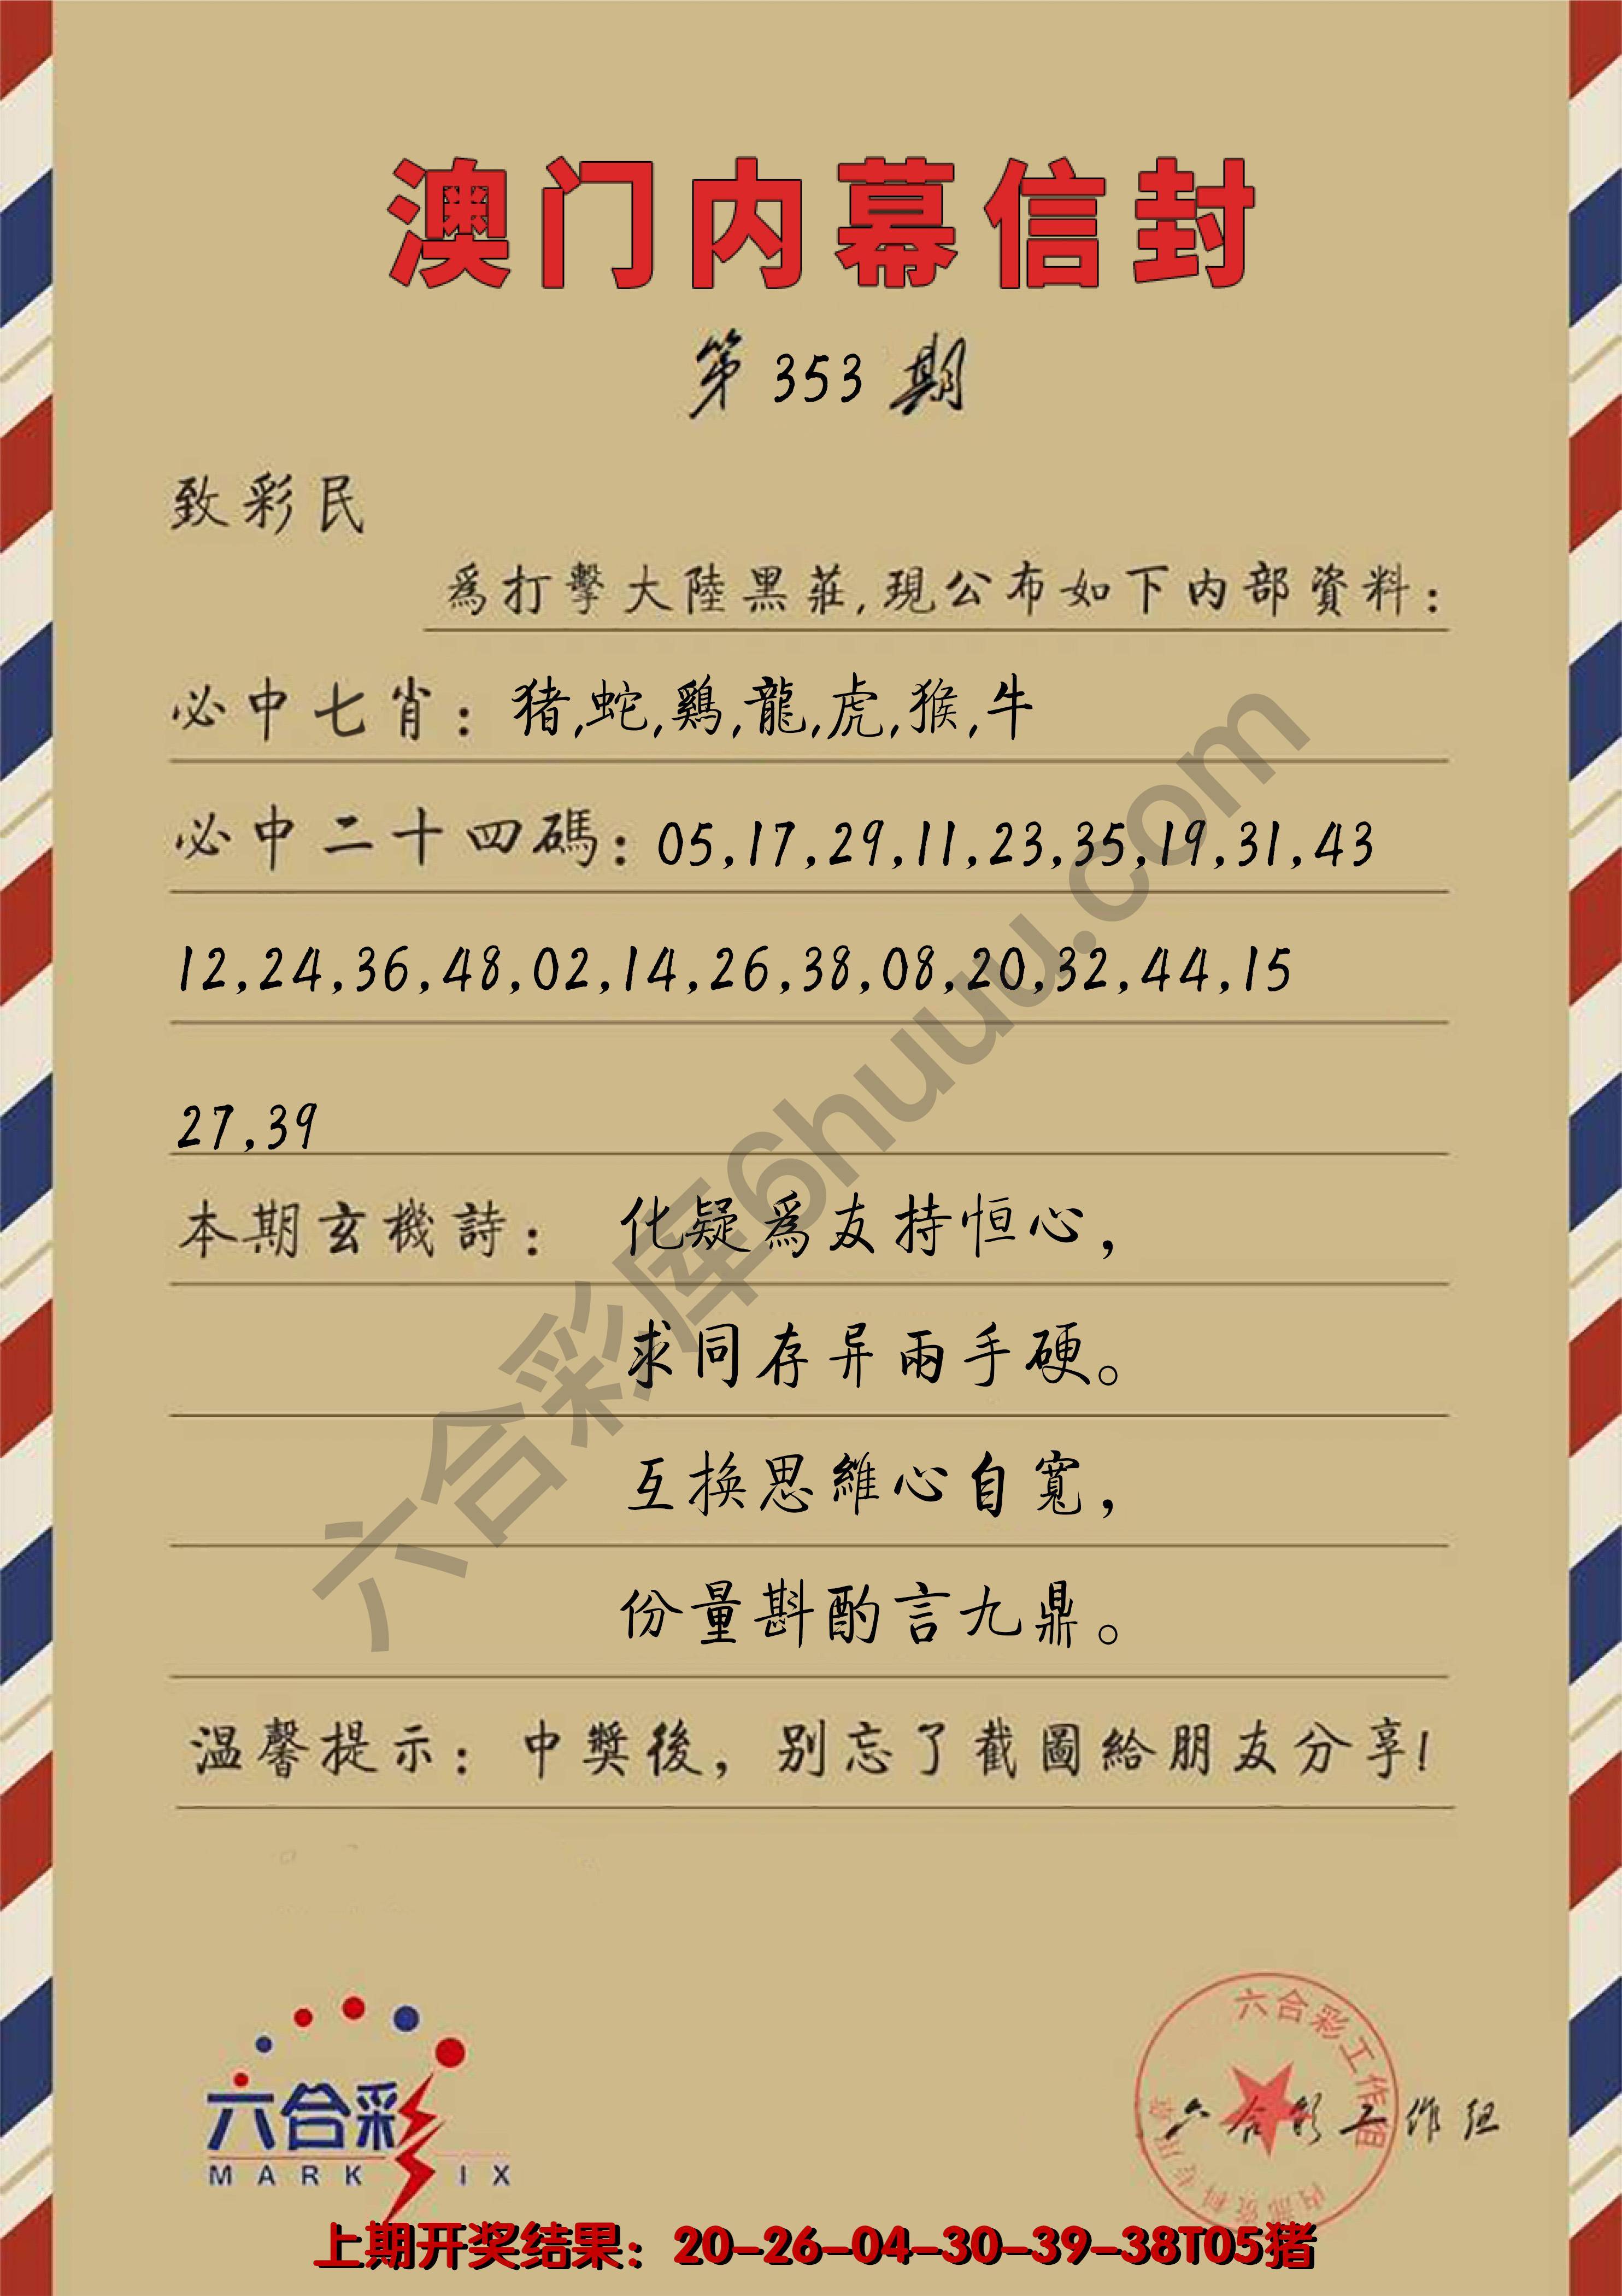 澳门内幕信封
第 353 期
致彩民
為打擊大陸黑莊,現公布如下内部資料:
必中七肖: 猪,蛇,鷄,龍,虎,猴,牛
必中二十四碼: 05,17,29,11,23,35,19,31,43
12,24,36,48,02,14,26,38,08,20,32,44,15
27,39
本期玄機詩: 化疑爲友持恒心,
求同存异兩手硬。
互换思維心自寬,
份量斟酌言九鼎。
温馨提示: 中獎後, 别忘了截圖給朋友分享!
六合彩库6huuu.com
六合彩
MARK IX
六合彩工作组
内部资料专用章
六合彩工作组
上期开奖结果: 20-26-04-30-39-38T05猪